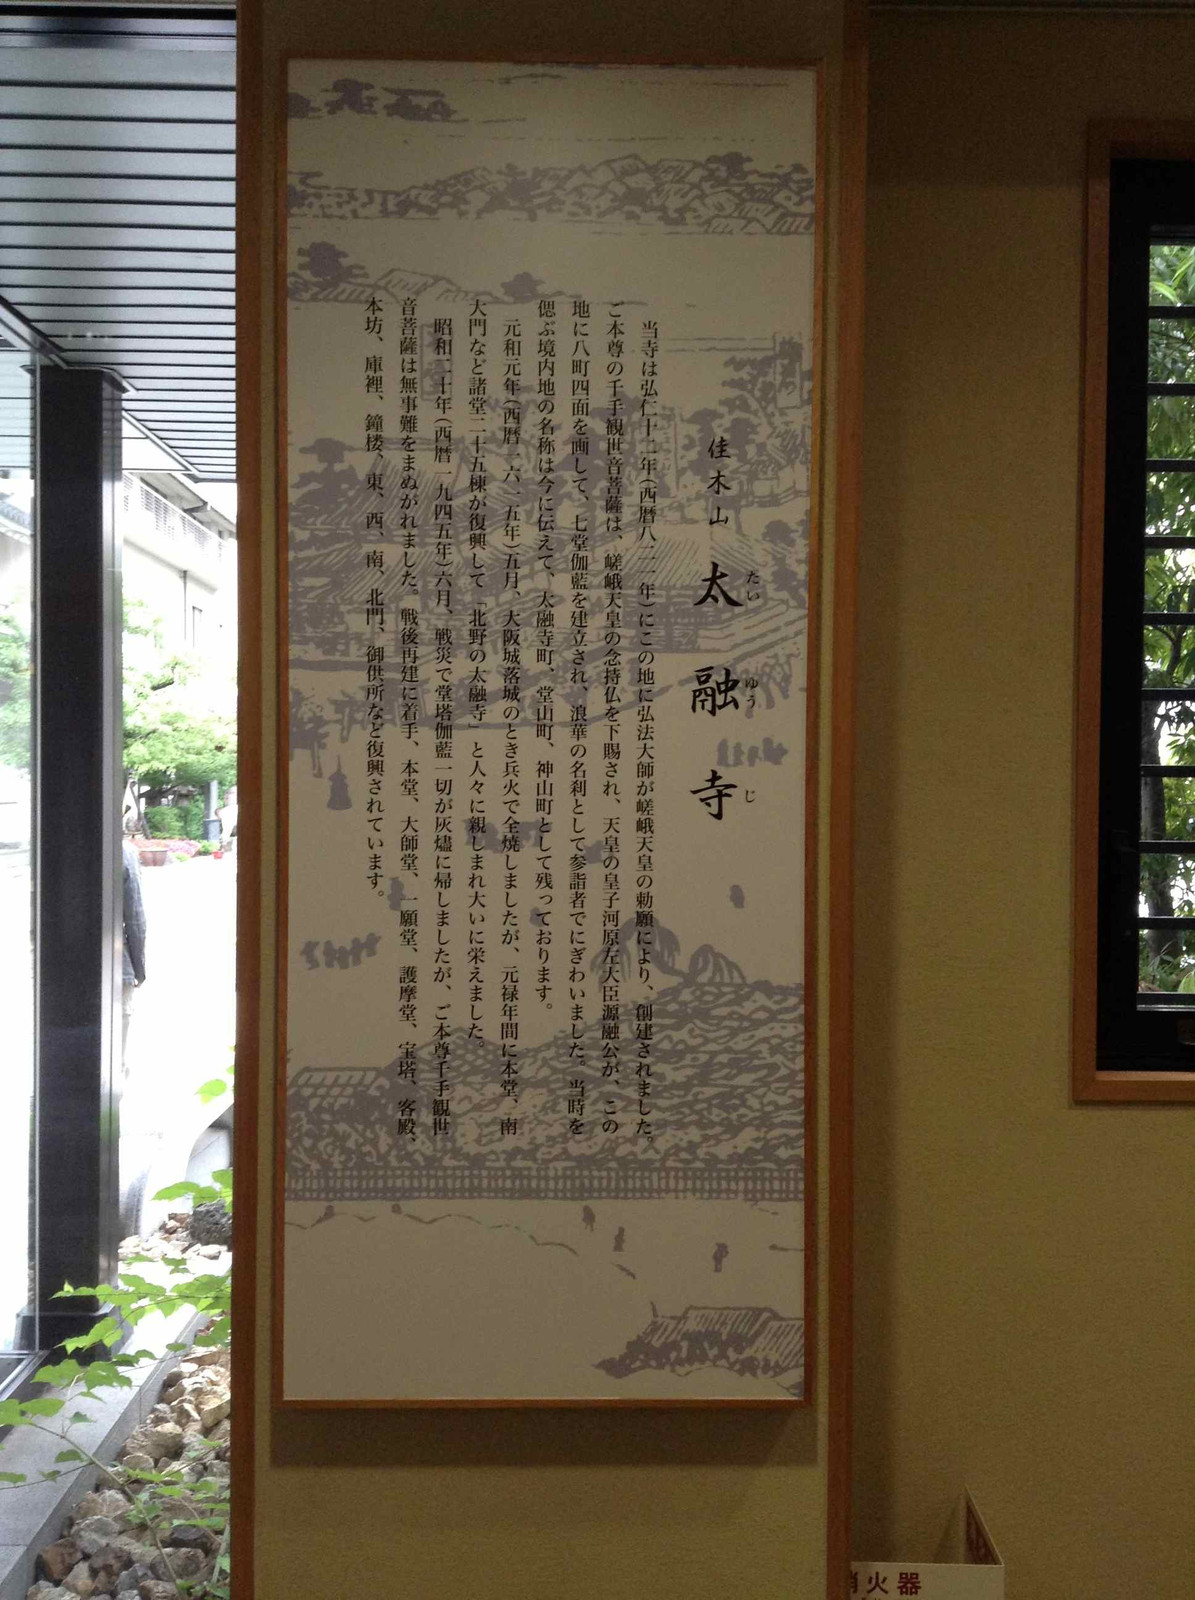 佳木山 太融寺
たい ゆう じ
当寺は弘仁十二年(西暦八二一年)にこの地に弘法大師が嵯峨天皇の勅願により、創建されました。
ご本尊の千手観世音菩薩は、嵯峨天皇の念持仏を下賜され、天皇の皇子河原左大臣源融公が、この
地に八町四面を画して、七堂伽藍を建立され、浪華の名刹として参詣者でにぎわいました。当時を
偲ぶ境内地の名称は今に伝えて、太融寺町、堂山町、神山町として残っております。
元和元年(西暦一六一五年)五月、大阪城落城のとき兵火で全焼しましたが、元禄年間に本堂、南
大門など諸堂二十五棟が復興して「北野の太融寺」と人々に親しまれ大いに栄えました。
昭和二十年(西暦一九四五年)六月、戦災で堂塔伽藍一切が灰燼に帰しましたが、ご本尊千手観世
音菩薩は無事難をまぬがれました。戦後再建に着手、本堂、大師堂、一願堂、護摩堂、宝塔、客殿、
本坊、庫裡、鐘楼、東、西、南、北門、御供所など復興されています。
消火器